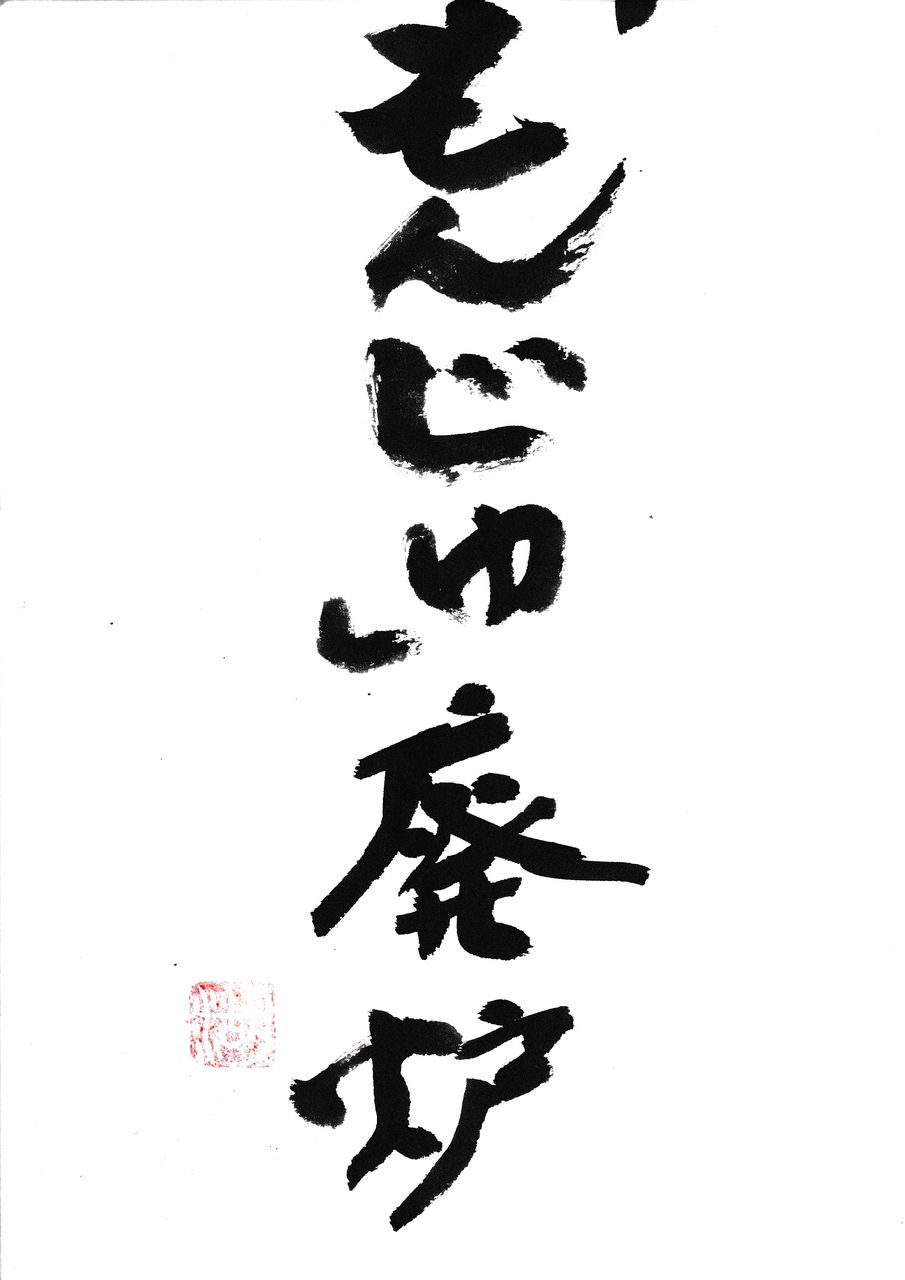 もんじゅ廃炉